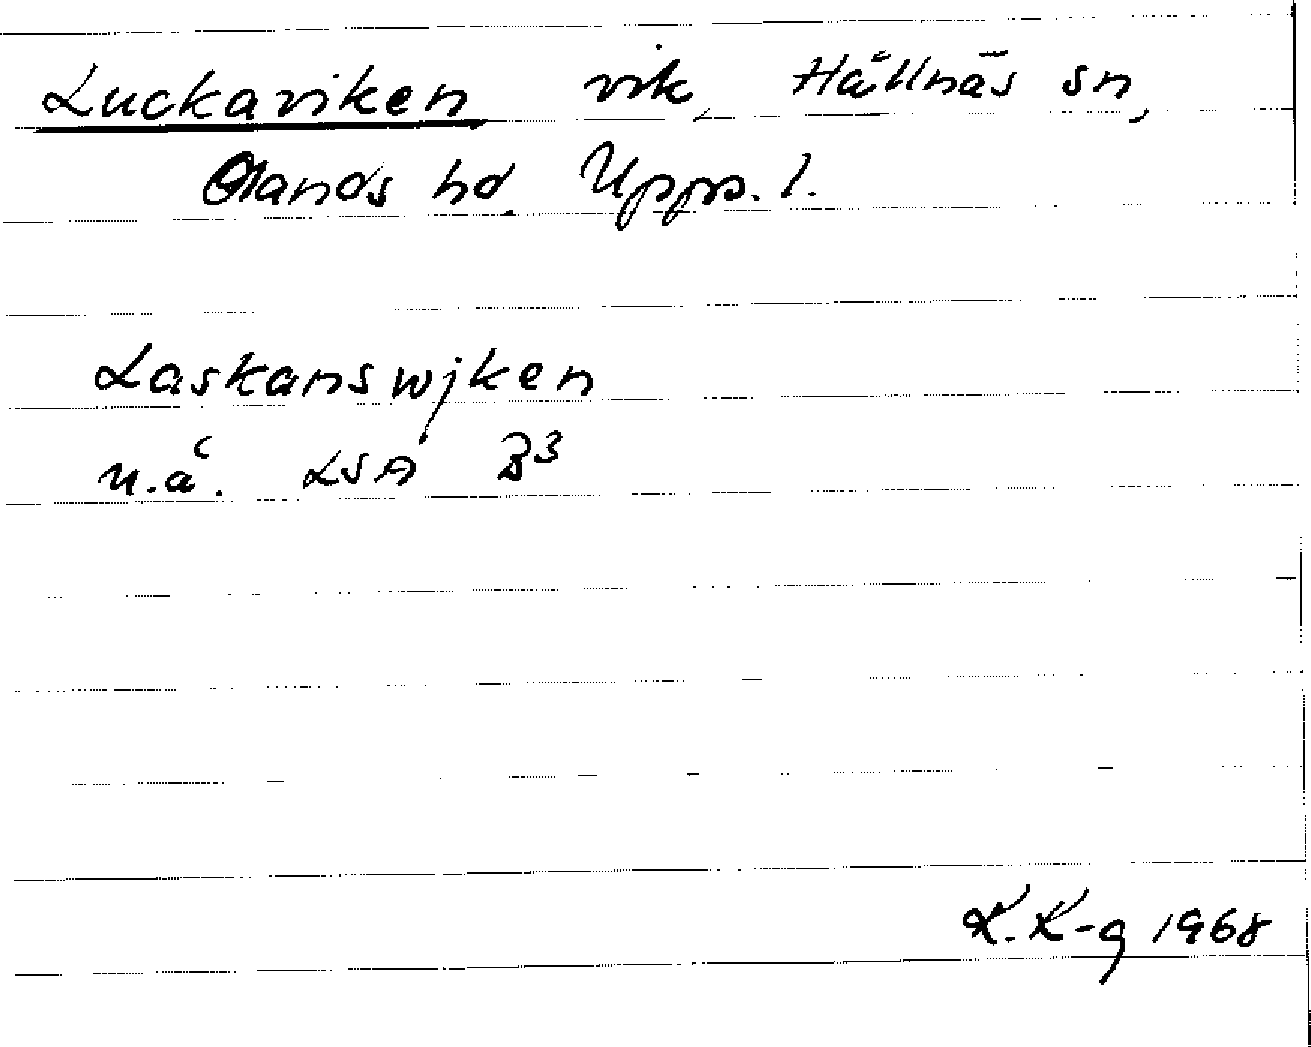 Luckaviken vik, Hållnäs sn,
Olands hd. Upps. l.
Laskanswjken
u.å. LSA B3
K. K-g 1968